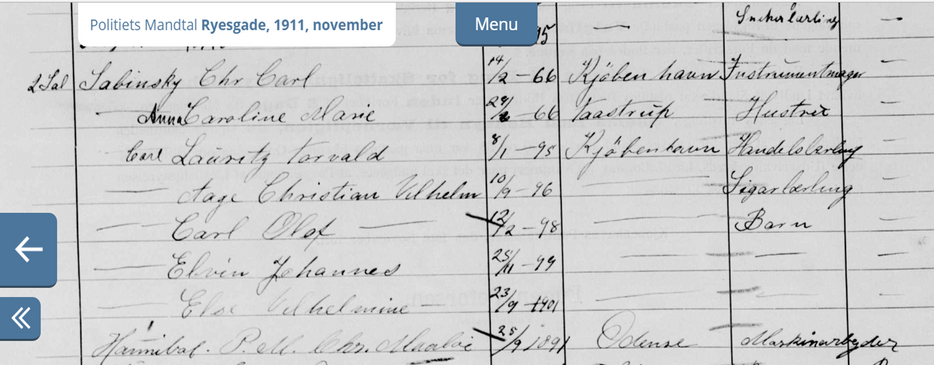 Politiets Mandtal Ryesgade, 1911, november
Menu
95
2 Sal Sabinsky Chr Carl 14/2-66 Kjöbenhavn Instrumentmager
Anna Caroline Marie 66 Taastrup Hustru
Carl Lauritz Torvald 8/1-95 Kjöbenhavn Handelslærling
Aage Christian Vilhelm 10/9-96 Sigarlærling
Carl Olof 12/2-98 Barn
Elvin Johannes 25/11-99
Else Vilhelmine 23/9-1901
Hannibal. P. M. Chr. 25/9 1891 Odense Maskinarbejder